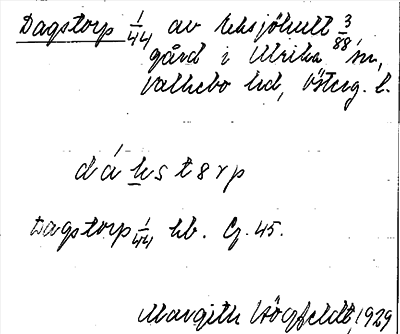 Dagstorp 1/44 av Eksjöhult 3/88
gård i Ulrika sn,
Valkebo hd, Österg. l.
dákstørp
Dagstorp 1/44 hb. Cg. 45.
Margith Högfeldt, 1929